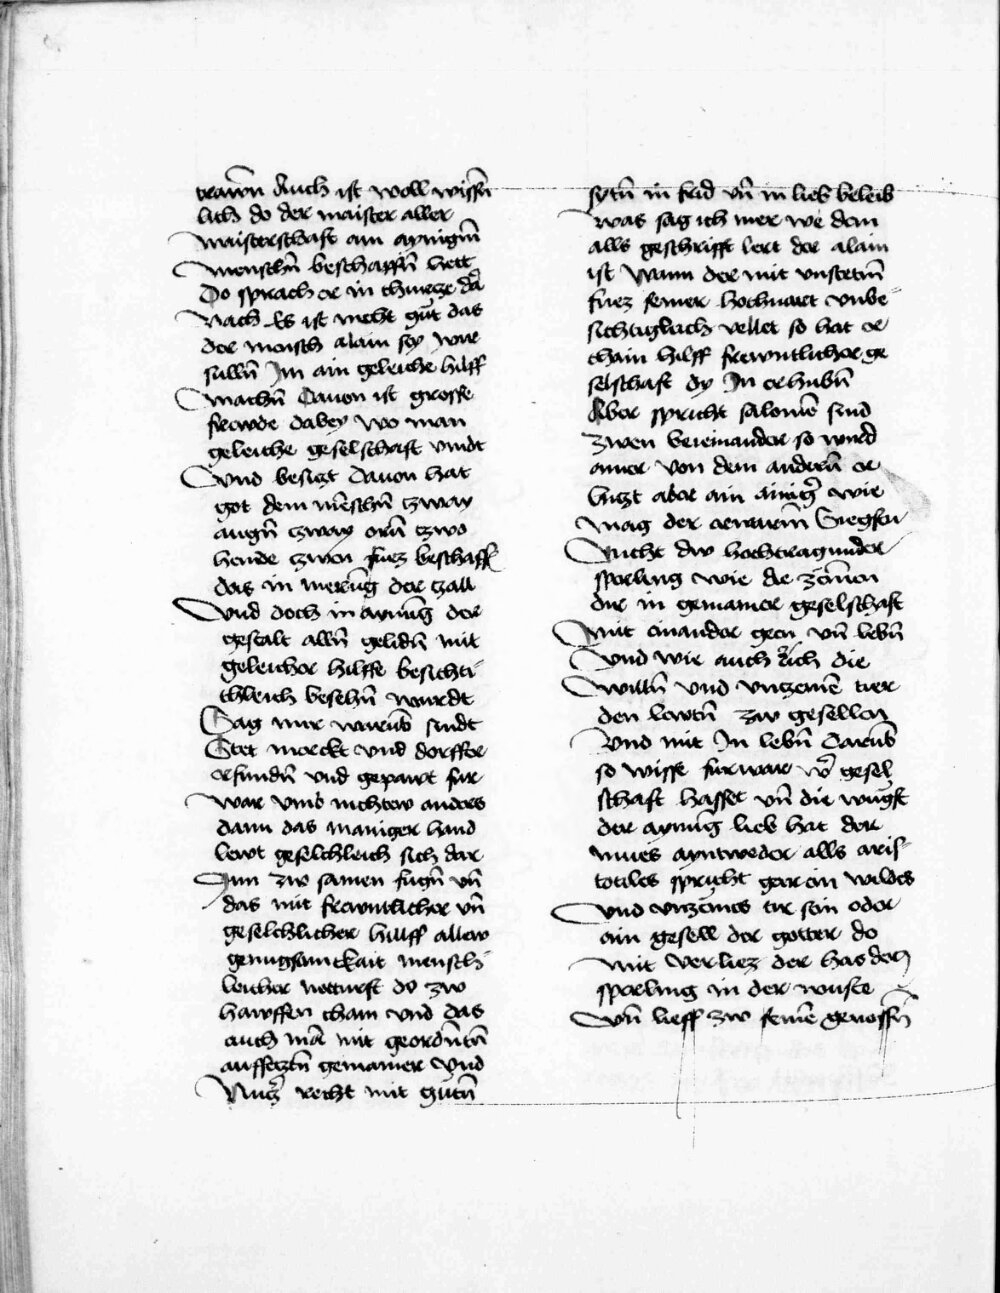 trawrn Auch ist woll wissn̄
lich do der maister aller
maisterschaft ain aynigm̄
menschn̄ beschaffn̄ hett
Do sprach er in churcze dar
nach Es ist nicht gut das
der mensch alain sey wir
sulln̄ Im ain geleiche hilff
machn̄ Dauon ist grosse
frewde dabey wo man
geleiche geselschaft vindt
Vnd besizt Dauon hat
got dem mēschn̄ czway
augn̄ czway orn̄ czwo
hende czwen fuez beschaff
das in merūg der czall
Vnd doch in aynūg der
gestalt alln̄ gelidn̄ mit
geleicher hilffe besichti
chleich besehn̄ wurdt
Sag mir warūb sindt
Stet merckt vnd dorffer
erfundn̄ vnd gepawt fur
war vmb nichtew anders
dann das maniger hand
lewt geselchleich sich dar
Inn zw samen fugn̄ vn̄
das mit frewntlicher vn̄
geselchlicher hilff allew
genugsamkait mensch
leicher notturft do zw
hawffen cham vnd das
auch mā mit geordnūtn̄
auffseczn̄ gemainer vnd
Nucz recht mit gutn̄
sytn̄ in frid vn̄ in lieb beleib
was sag ich mer we dem
alls geschrifft lert der alain
ist Wann der mit vnstetm̄
fuez seiner hochuart vnbe
sichtiglich vellet so hat er
chain hilff frewntlicher ge
selschaft dy In erhubn̄
Aber spricht salomē sind
zwen beieinander so wird
ainer von dem andern̄ er
hiczt aber ain ainiger wie
mag der erwarm̄ Siegstu
Nicht dw hochtragunder
sperling wie die zāmen
dir in gemainer geselschaft
mit einander geen vn̄ lebn̄
Vnd wie auch sich die
Willn̄ vnd vnzemē tier
den lewtn̄ zw gesellen
Vnd mit In lebn̄ Darūb
so wisse furwar wer gesel
schaft hasset vn̄ die wūst
der aynūg lieb hat der
mues ayntweder alls aris
totiles spricht gar ein wildes
vnd vnzemes tir sein oder
ain gesell der gotter do
mit verliez der has den
sperling in der wuste
vn̄ lieff zw seinē genossn̄